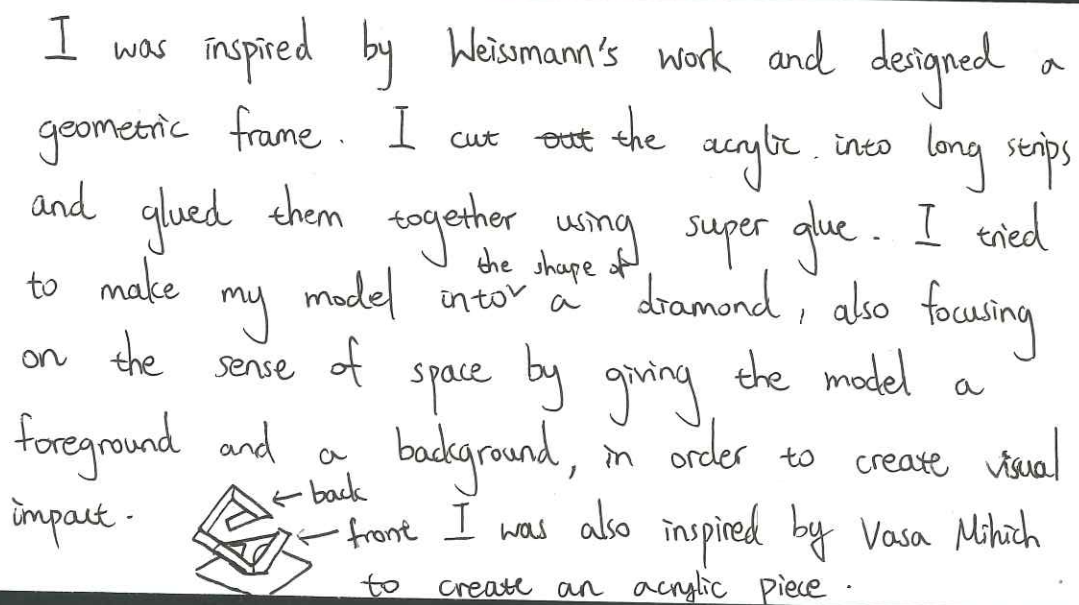 I was inspired by Weissmann's work and designed a
geometric frame. I cut out the acrylic into long strips
and glued them together using super glue. I tried
to make my model into the shape of a diamond, also focusing
on the sense of space by giving the model a
foreground and a background, in order to create visual
impact.
← back
← front I was also inspired by Vasa Mihich
to create an acrylic piece.